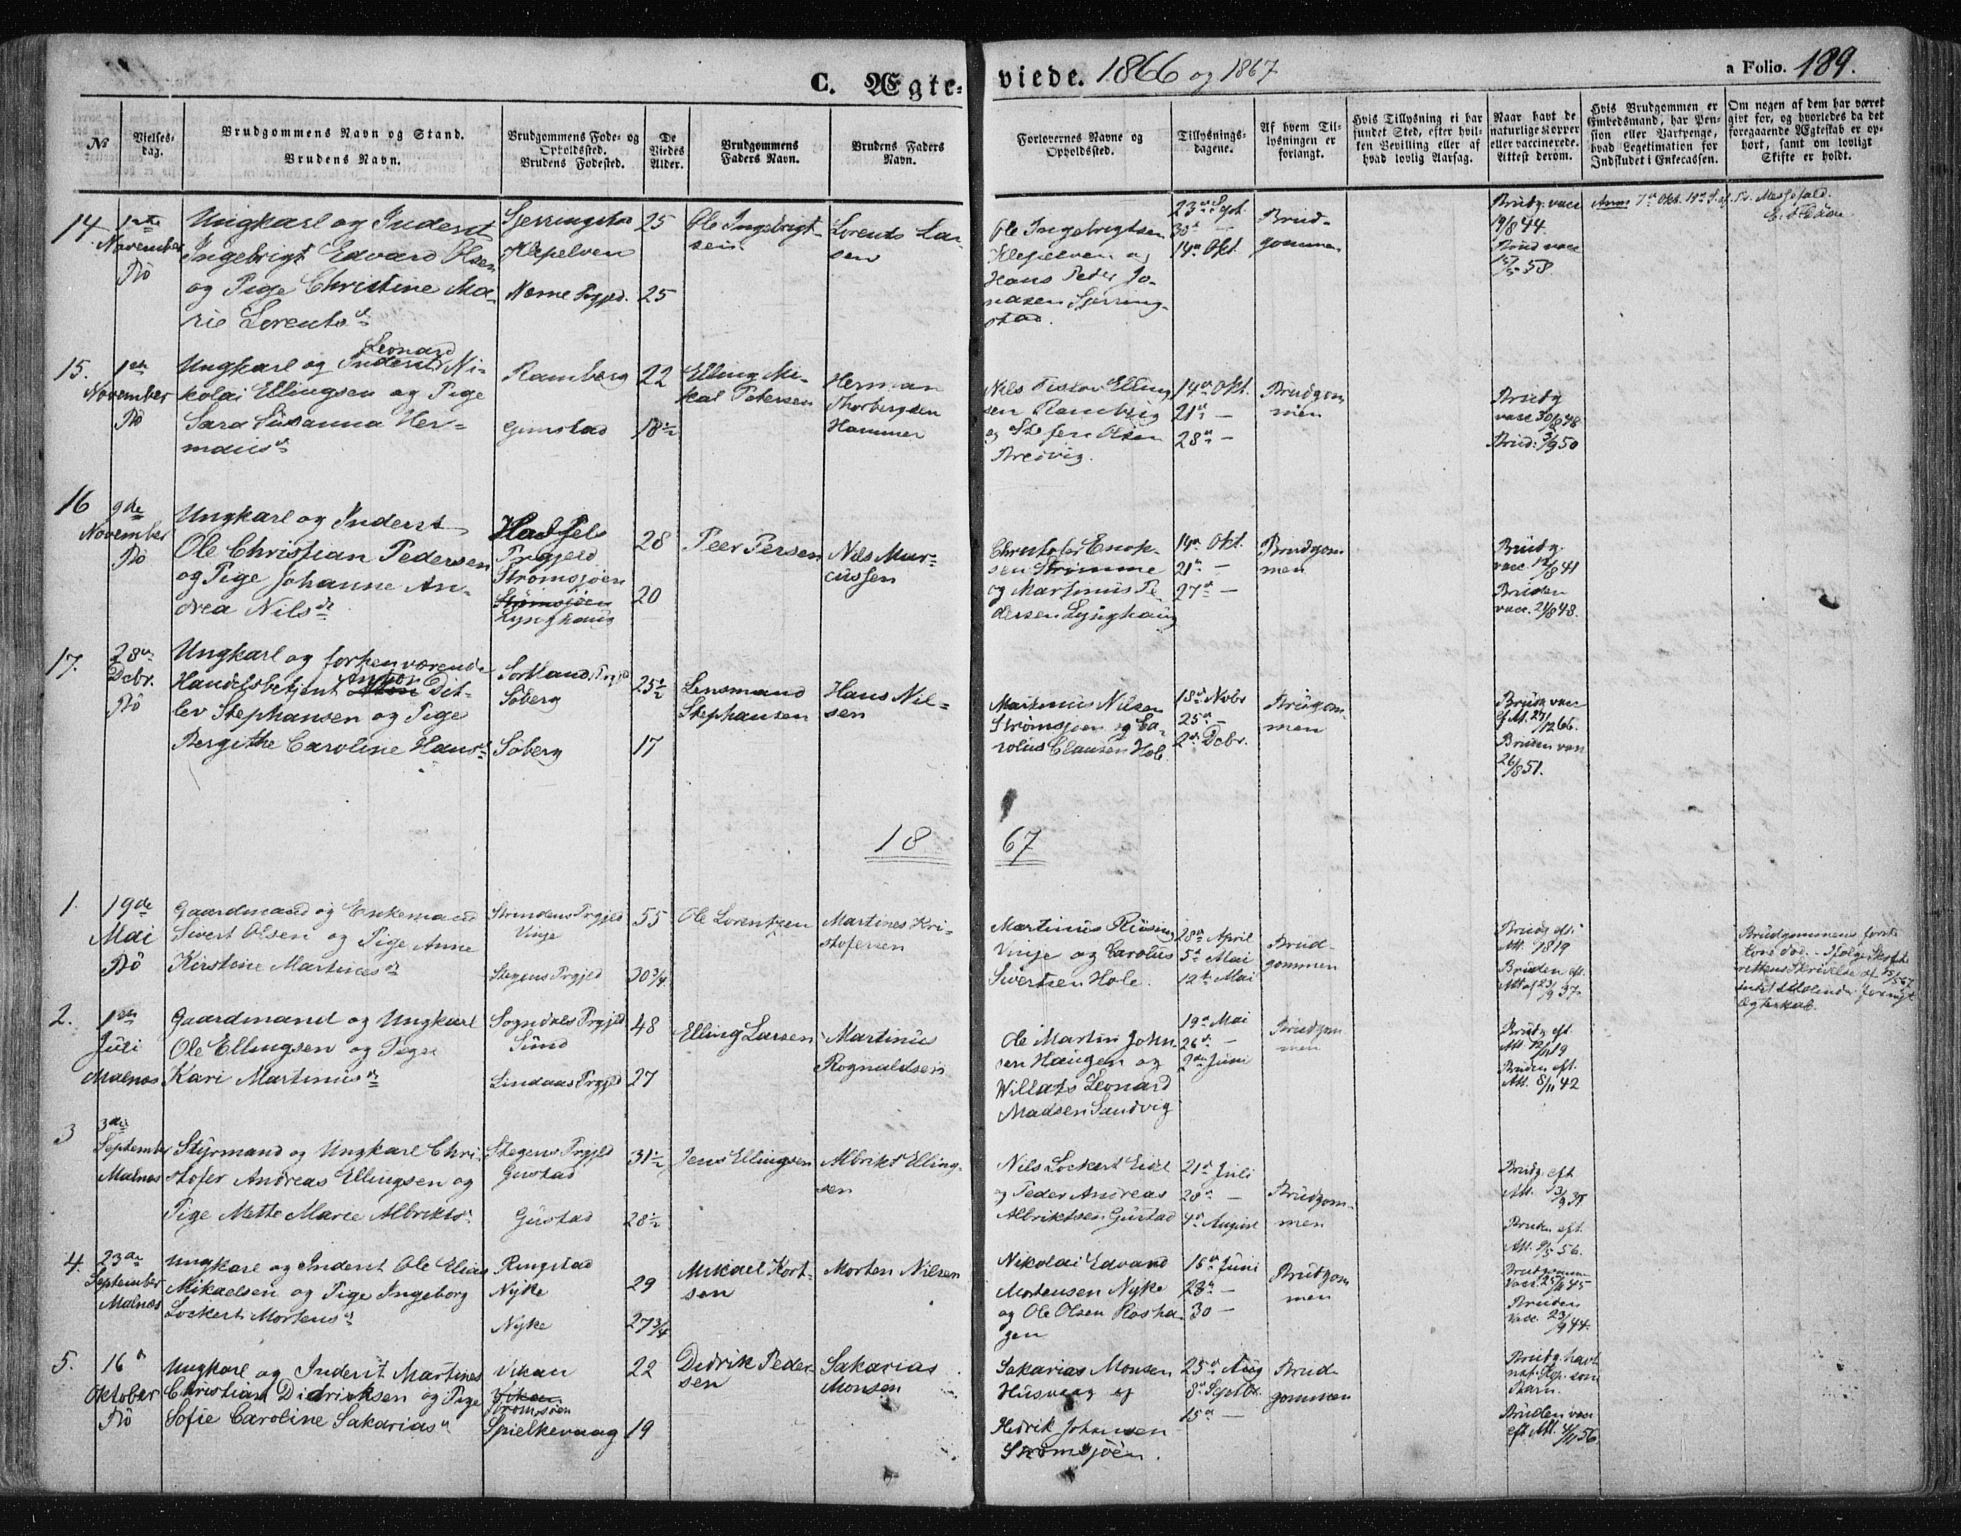 C. Ægteviede. 1866 og 1867
a Folio. 189.
№
Vielsesdag.
Brudgommens Navn og Stand.
Brudens Navn.
Brudgommens Føde- og Opholdssted.
Brudens Fødested.
De Viedes Alder.
Brudgommens Faders Navn.
Brudens Faders Navn.
Forlovernes Navne og Opholdssted.
Tillysningsdagene.
Af hvem Tillysningen er forlangt.
Hvis Tillysning ei har fundet Sted, efter hvilken Bevilling eller af hvad lovlig Aarsag.
Naar havt de naturlige Kopper eller vaccinerede. Attest derom.
Hvis Brudgommen er Embedsmand, har Pension eller Vartpenge, hvad Legetimation for Indskudet i Enkecassen.
Om nogen af dem har været givt før, og hvorledes da det foregaaende Ægteskab er ophørt, samt om lovligt Skifte er holdt.
14
1ste November Bö
Ungkarl og Inderst
Ingebrigt Edvard Olsen
og Pige Christine Ma-
rie Lorentsd
Klepelven
25
25
Ole Ingebrigt-
sen
Lorents Lar-
sen
Ole Ingebrigtsen
Klepelven og
Hans Peder Jo-
nasen
23de Sept.
30te —
14de Okt.
Brud-
gommen
Brudg. vacc
19/8 44.
Brud vacc
58.
15.
1ste November Bö
Ungkarl og Inderst Leonard Ni-
kolai Ellingsen og Pige
Sara Susanna Her-
mansd
Ramberg
Grimstad
22
18½
Elling Mi-
kal Petersen
Herman
Thorbergsen
Hammer
Nils Ellings-
sen Ramberg
og Olsen
Breivig.
14de Okt.
21de —
28de —
Brudgom
men
Brudg
vacc 30/8 48
Brud: 3/9 50
16
9de November Bö
Ungkarl og Inderst
Ole Christian Pedersen
og Pige Johanne An-
drea Nilsd
Hadsels
Prgjeld
Strömsjöen
Strömsjöen
Lynghaug
28
20
Peer Persen
Nils Mar-
cussen
Christofer Enok-
sen Strömme
og Martinus Pe-
dersen Lynghaug
14de Okt.
21de —
27de —
Brudgom-
men
Brudg.
vacc. 12/8 41
Bruden
vacc. 21/8 48.
17.
28de Decbr. Bö
Ungkarl og forhenværende
Handelsbetjent Anton Dit-
lev Stephansen og Pige
Bergithe Caroline Hansd
Sortland Prgjld
Söberg
Söberg
25½
17
Lensmand
Stephansen
Hans Nil-
sen
Martinus Nilsen
Strömsjöen og Ca-
rolus Clausen Hol
18de Novbr
25de —
2den Decbr.
Brudgom-
men
Brudg. vacc
ef At. 27/12 66.
Bruden vacc
26/8 51.
1867
1.
19de Mai Bö
Gaardmand og Enkemand
Sivert Olsen og Pige Anne
Kirstine Martinesd
Strindens Prgjeld
Vinje
Stegens Prgjeld
55
30¾
Ole Lorentzen
Martines Kri-
stofersen
Martinus
Vinje og Carolus
Sivertsen Hole.
28de April
5te Mai
12te Mai
Brud-
gommen
Brudg eft.
Att. 1819
Bruden eft.
Att af 23/9 37.
Brudgommens förste
Kone död. — Ifölge Skifte-
rettens Skrivelse af
Ægteskab.
2.
1ste Juli Malnæs
Gaardmand og Ungkarl
Ole Ellingsen og Pige
Kari Martinusd
Sogndals Prgjeld
Sund
Lindaas Prgjeld
48
27
Elling Larsen
Martinus
Rognaldsen
Ole Martin John-
sen Haugen og
Willats Leonard
Madsen Sandvig
19de Mai
26de —
2den Juni
Brudgom
men
Brudg eft.
Att. 19
Bruden eft.
Att. 8/11 42
3
3die September Malnæs
Styrmand og Ungkarl Chri-
stofer Andreas Ellingsen og
Pige Mette Marie Albriktsd
Stegens Prgjld
Gustad
Gustad
31½
28½
Jens Ellingsen
Albrikt Elling-
sen
Nils Lockert Eidet
og Peder Andreas
Albriktsen Gustad
21de Juli
28de —
4de August
Brudgom-
men
Brudg eft
Att. 13/9 35
Bruden eft.
Att. 9/5 56.
4.
23de September Malnæs
Ungkarl og Inderst Ole Elias
Mikaelsen og Pige Ingeborg
Lockert Mortensd
Ringstad
Nyke
Nyke
29
27¾
Mikael Kort-
sen
Morten Nilsen
Nikolai Edvard
Mortensen Nyke
og Ole Olsen Rosha-
gen
16de Juni
23de —
30 —
Brudgom
men
Brudgommen
vacc. 45
Bruden
vacc. 23/9 44.
5.
16de Oktober Bö
Ungkarl og Inderst Martines
Christian Didriksen og Pige
Sofie Caroline Sakariasd
Vikan
Vikan
Strömsöen
Spielkevaag
22
19
Didrik Peder-
sen
Sakarias
Monsen
Sakarias Monsen
Husvaag og
Hedrik Johansen
Strömsjöen.
25de Aug
8de Septbr.
15de —
Brud-
gommen
Brudg. havt
nat. Kop. som
Barn.
Bruden vacc
eft Att. 4/11 56.